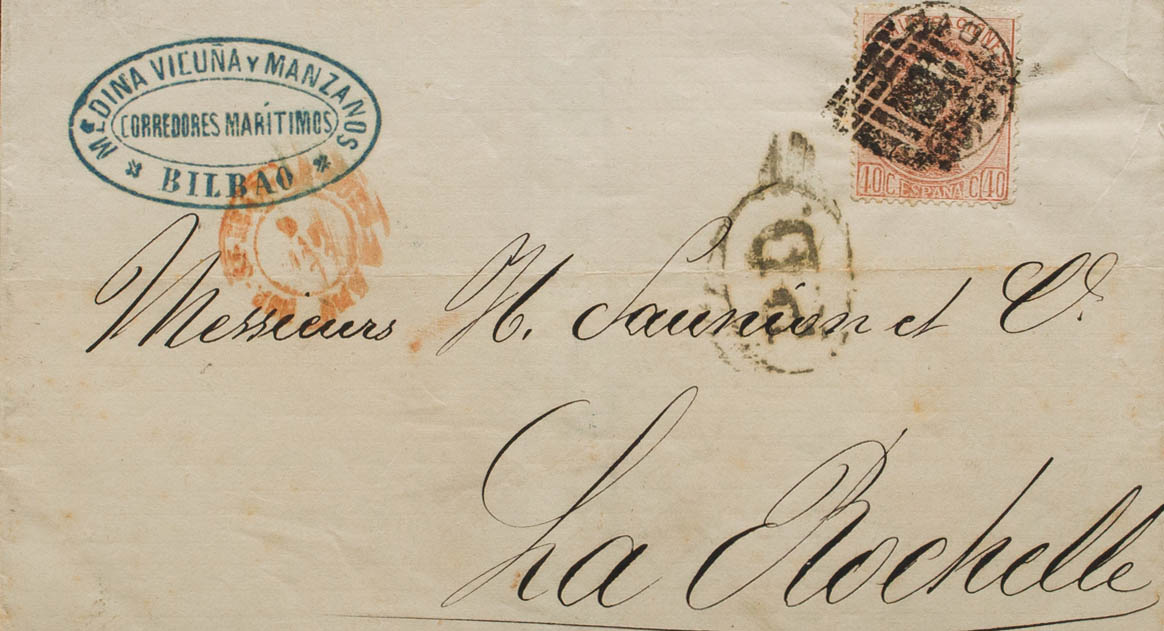 MEDINA VICUÑA Y MANZANOS
CORREDORES MARÍTIMOS
* BILBAO *
40 C. ESPAÑA C. 40
P.D.
Messieurs H. Saunion et Cº.
La Rochelle